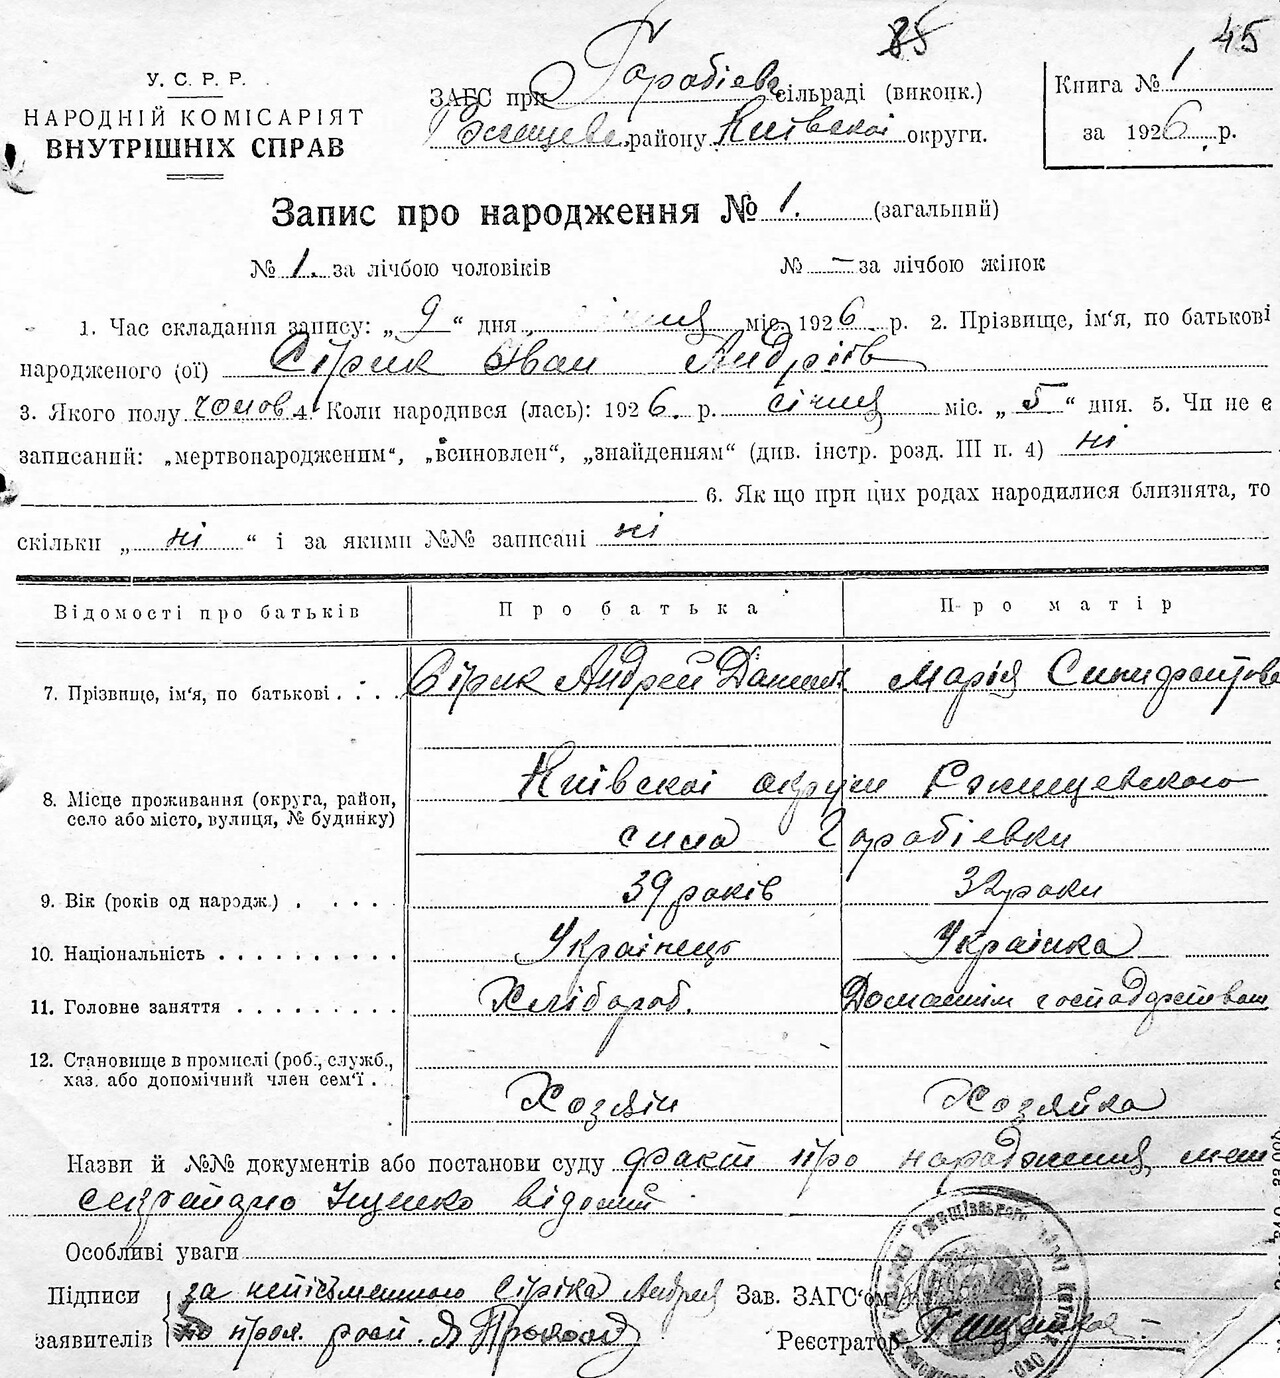 85 45
У. С. Р. Р.
НАРОДНІЙ КОМІСАРІЯТ
ВНУТРІШНІХ СПРАВ
ЗАГС при Горобіевс. сільраді (виконк.)
району Київскоі округи.
Книга № 1
за 1926 р.
Запис про народження № 1. (загальний)
№ 1. за лічбою чоловіків № — за лічбою жінок
1. Час складання запису: „ 9 “ дня січня міс. 1926 р. 2. Прізвище, ім‘я, по батькові
народженого (ої) Сірик Іван Андріїв
3. Якого полу чолов 4. Коли народився (лась): 1926. р. січня міс. „ 5 “ дня. 5. Чи не є
записаний: „мертвонародженим“, „всиновлен“, „знайденням“ (див. інстр. розд. III п. 4) ні
6. Якщо при цих родах народилися близнята, то
скільки „ ні “ і за якими №№ записані ні
Відомості про батьків Про батька Про матір
7. Прізвище, ім‘я, по батькові . . . Сірик Андрей Данил Марія
8. Місце проживання (округа, район, село або місто, вулиця, № будинку)
Київскоі округи
села Горобіевки
9. Вік (років од народж.) . . . . . 39 років 32 роки
10. Національність . . . . . . . . . . Українець Українка
11. Головне заняття . . . . . . . . . Хлібороб. Домашнім господарством
12. Становище в промислі (роб., служб., хаз. або допомічний член сем‘ї . .
Хозяін Хозяйка
Назви й №№ документів або постанови суду факт про народження мені
секретарю Іщенко відомий
Особливі уваги
Підписи за непісьменного Сіріка Андрея Зав. ЗАГС‘ом
заявителів по прох. росп. Реєстратор